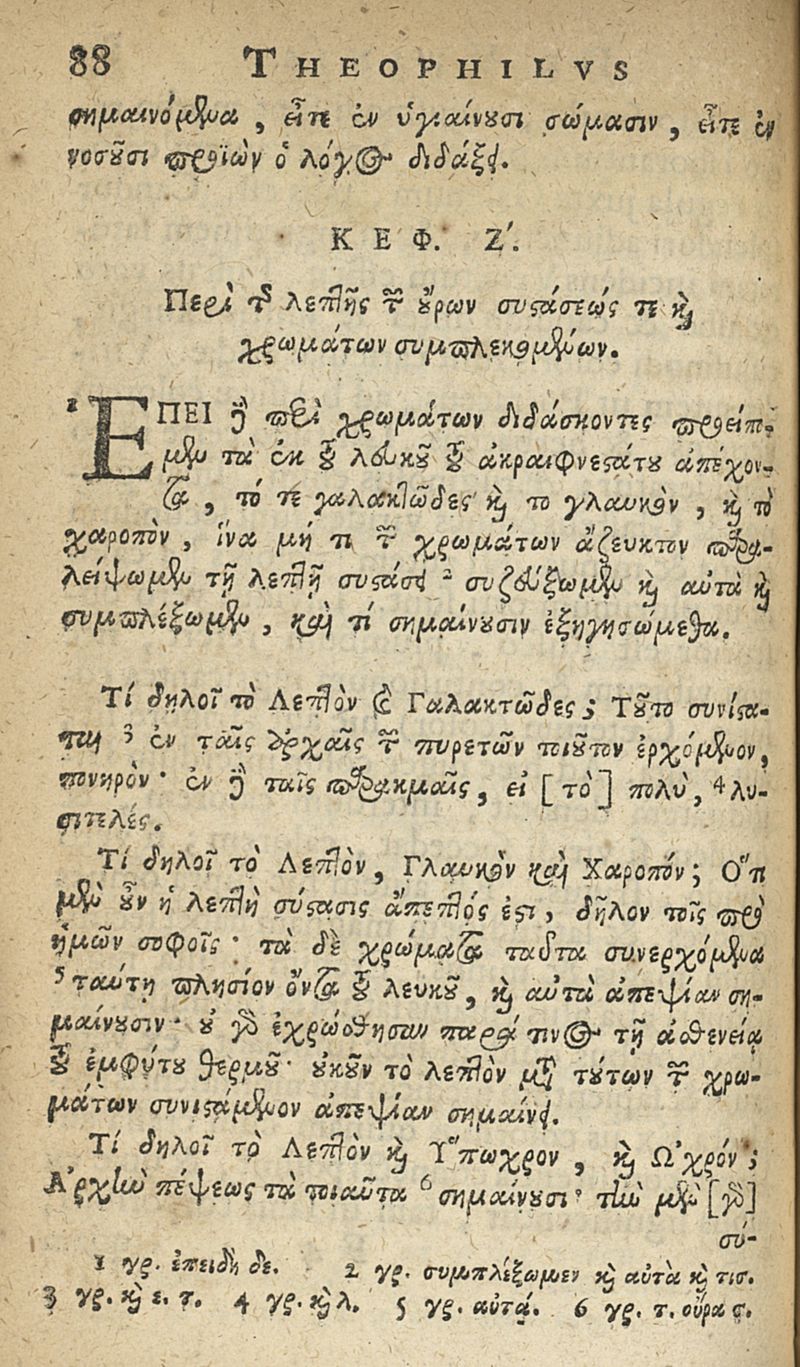 88 THEOPHILVS
σημαινόμενα, εἴτε ἐν ὑγιαίνουσι σώμασιν, εἴτε ἐν
νοσοῦσι προϊὼν ὁ λόγος διδάξει.
ΚΕΦ. Ζʹ.
Περὶ τῆς λεπτῆς τῶν οὔρων συστάσεώς τε καὶ
χρωμάτων συμπλεκομένων.
¹ ἘΠΕΙ δὲ περὶ χρωμάτων διδάσκοντες προείπο-
μεν τὰ ἐκ τοῦ λευκοῦ τοῦ ἀκραιφνεστάτου ἀπέχον-
τα, τό τε γαλακτῶδες καὶ το γλαυκὸν, καὶ τὸ
χαροπὸν, ἵνα μή τι τῶν χρωμάτων ἄζευκτον παρα-
λείψωμεν τῇ λεπτῇ συστάσει ² συζεύξωμεν καὶ αὐτὰ καὶ
συμπλέξωμεν, καὶ τί σημαίνουσιν ἐξηγησώμεθα.
Τί δηλοῖ τὸ Λεπτὸν καὶ Γαλακτῶδες; Τοῦτο συνίστα-
ται ³ ἐν ταῖς ἀρχαῖς τῶν πυρετῶν τοιοῦτον ἐρχόμενον,
πονηρὸν· ἐν δὲ ταῖς παρακμαῖς, εἰ [τὸ] πολὺ, ⁴ λυ-
σιτελές.
Τί δηλοῖ τὸ Λεπτὸν, Γλαυκὸν καὶ Χαροπόν; Ὅτι
μὲν οὖν ἡ λεπτὴ σύστασις ἄπεπτός ἐστι, δῆλον τοῖς πρὸ
ἡμῶν σοφοῖς· τὰ δὲ χρώματα ταῦτα συνερχόμενα
⁵ ταύτῃ πλησίον ὄντα τοῦ λευκοῦ, καὶ αὐτὰ ἀπεψίαν ση-
μαίνουσιν· οὐ γὰρ ἐχρώσθησαν παρά τινος τῇ ἀσθενείᾳ
τοῦ ἐμφύτου θερμοῦ· οὐκοῦν τὸ λεπτὸν μετὰ τούτων τῶν χρω-
μάτων συνιστάμενον ἀπεψίαν σημαίνει.
Τί δηλοῖ τὸ Λεπτὸν καὶ Ὕπωχρον, καὶ Ὠχρόν;
Ἀρχὴν πέψεως τὰ τοιαῦτα ⁶ σημαίνουσι· τὴν μὲν [γὰρ]
σύ-
1 γρ. ἐπειδὴ δε. 2 γρ. συμπλέξωμεν καὶ αὐτὰ καὶ τισ.
3 γρ. καὶ ε. τ. 4 γρ. καὶ λ. 5 γρ. αὐτά. 6 γρ. τ. οὖρα σ.